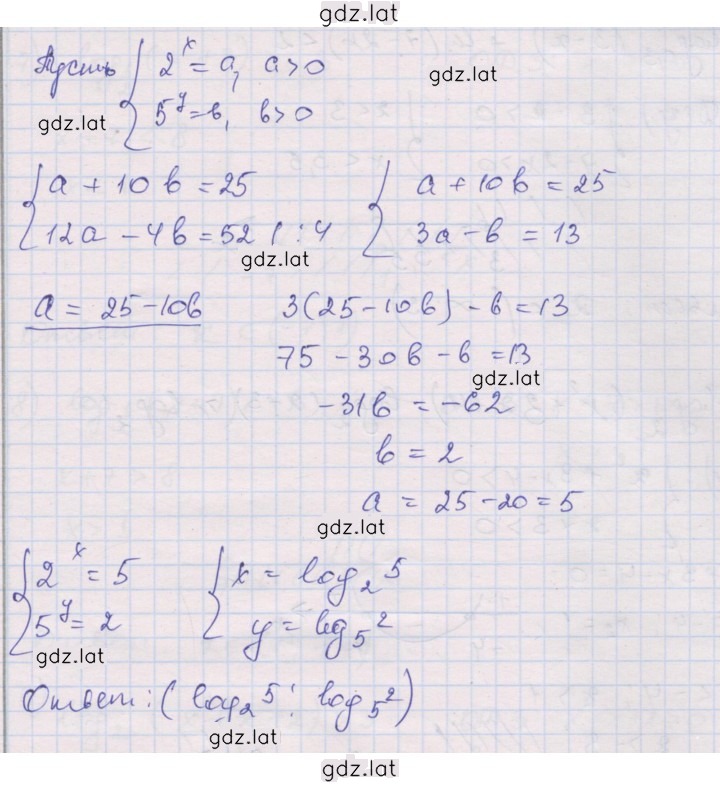 gdz.lat
Пусть { 2^x = a, a > 0
gdz.lat
5^y = b, b > 0
gdz.lat
{ a + 10b = 25 { a + 10b = 25
12a - 4b = 52 | : 4 3a - b = 13
gdz.lat
a = 25 - 10b 3(25 - 10b) - b = 13
75 - 30b - b = 13
gdz.lat
-31b = -62
b = 2
a = 25 - 20 = 5
gdz.lat
{ 2^x = 5 { x = log_2 5
5^y = 2 y = log_5 2
gdz.lat
Ответ: (log_2 5; log_5 2)
gdz.lat
gdz.lat